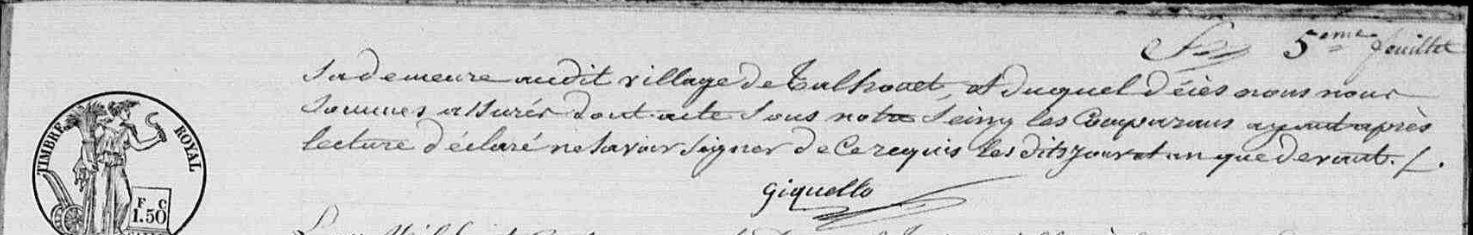 5eme feuillet
sa demeure audit village de Talhouet, et duquel décès nous nous
sommes assurés dont acte sous notre seing les Comparans ayant après
lecture déclaré ne savoir signer de ce requis les dits jour et an que devant.
giquello
TIMBRE ROYAL
F C
1.50